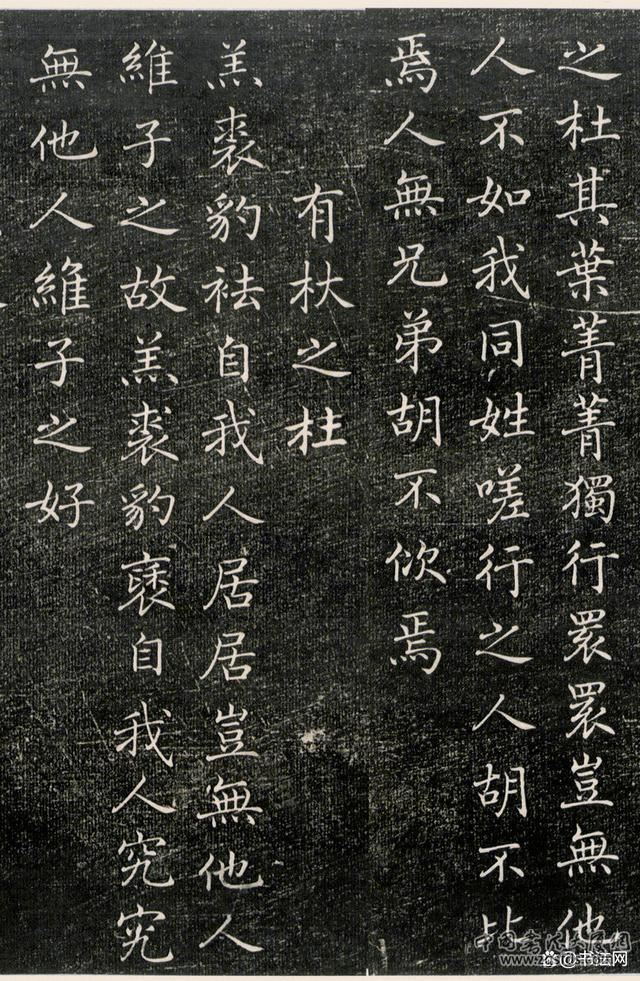 之杜其葉菁菁獨行睘睘豈無他
人不如我同姓嗟行之人胡不比
焉人無兄弟胡不佽焉
有杕之杜
羔裘豹袪自我人居居豈無他人
維子之故羔裘豹褎自我人究究
無他人維子之好
书法网